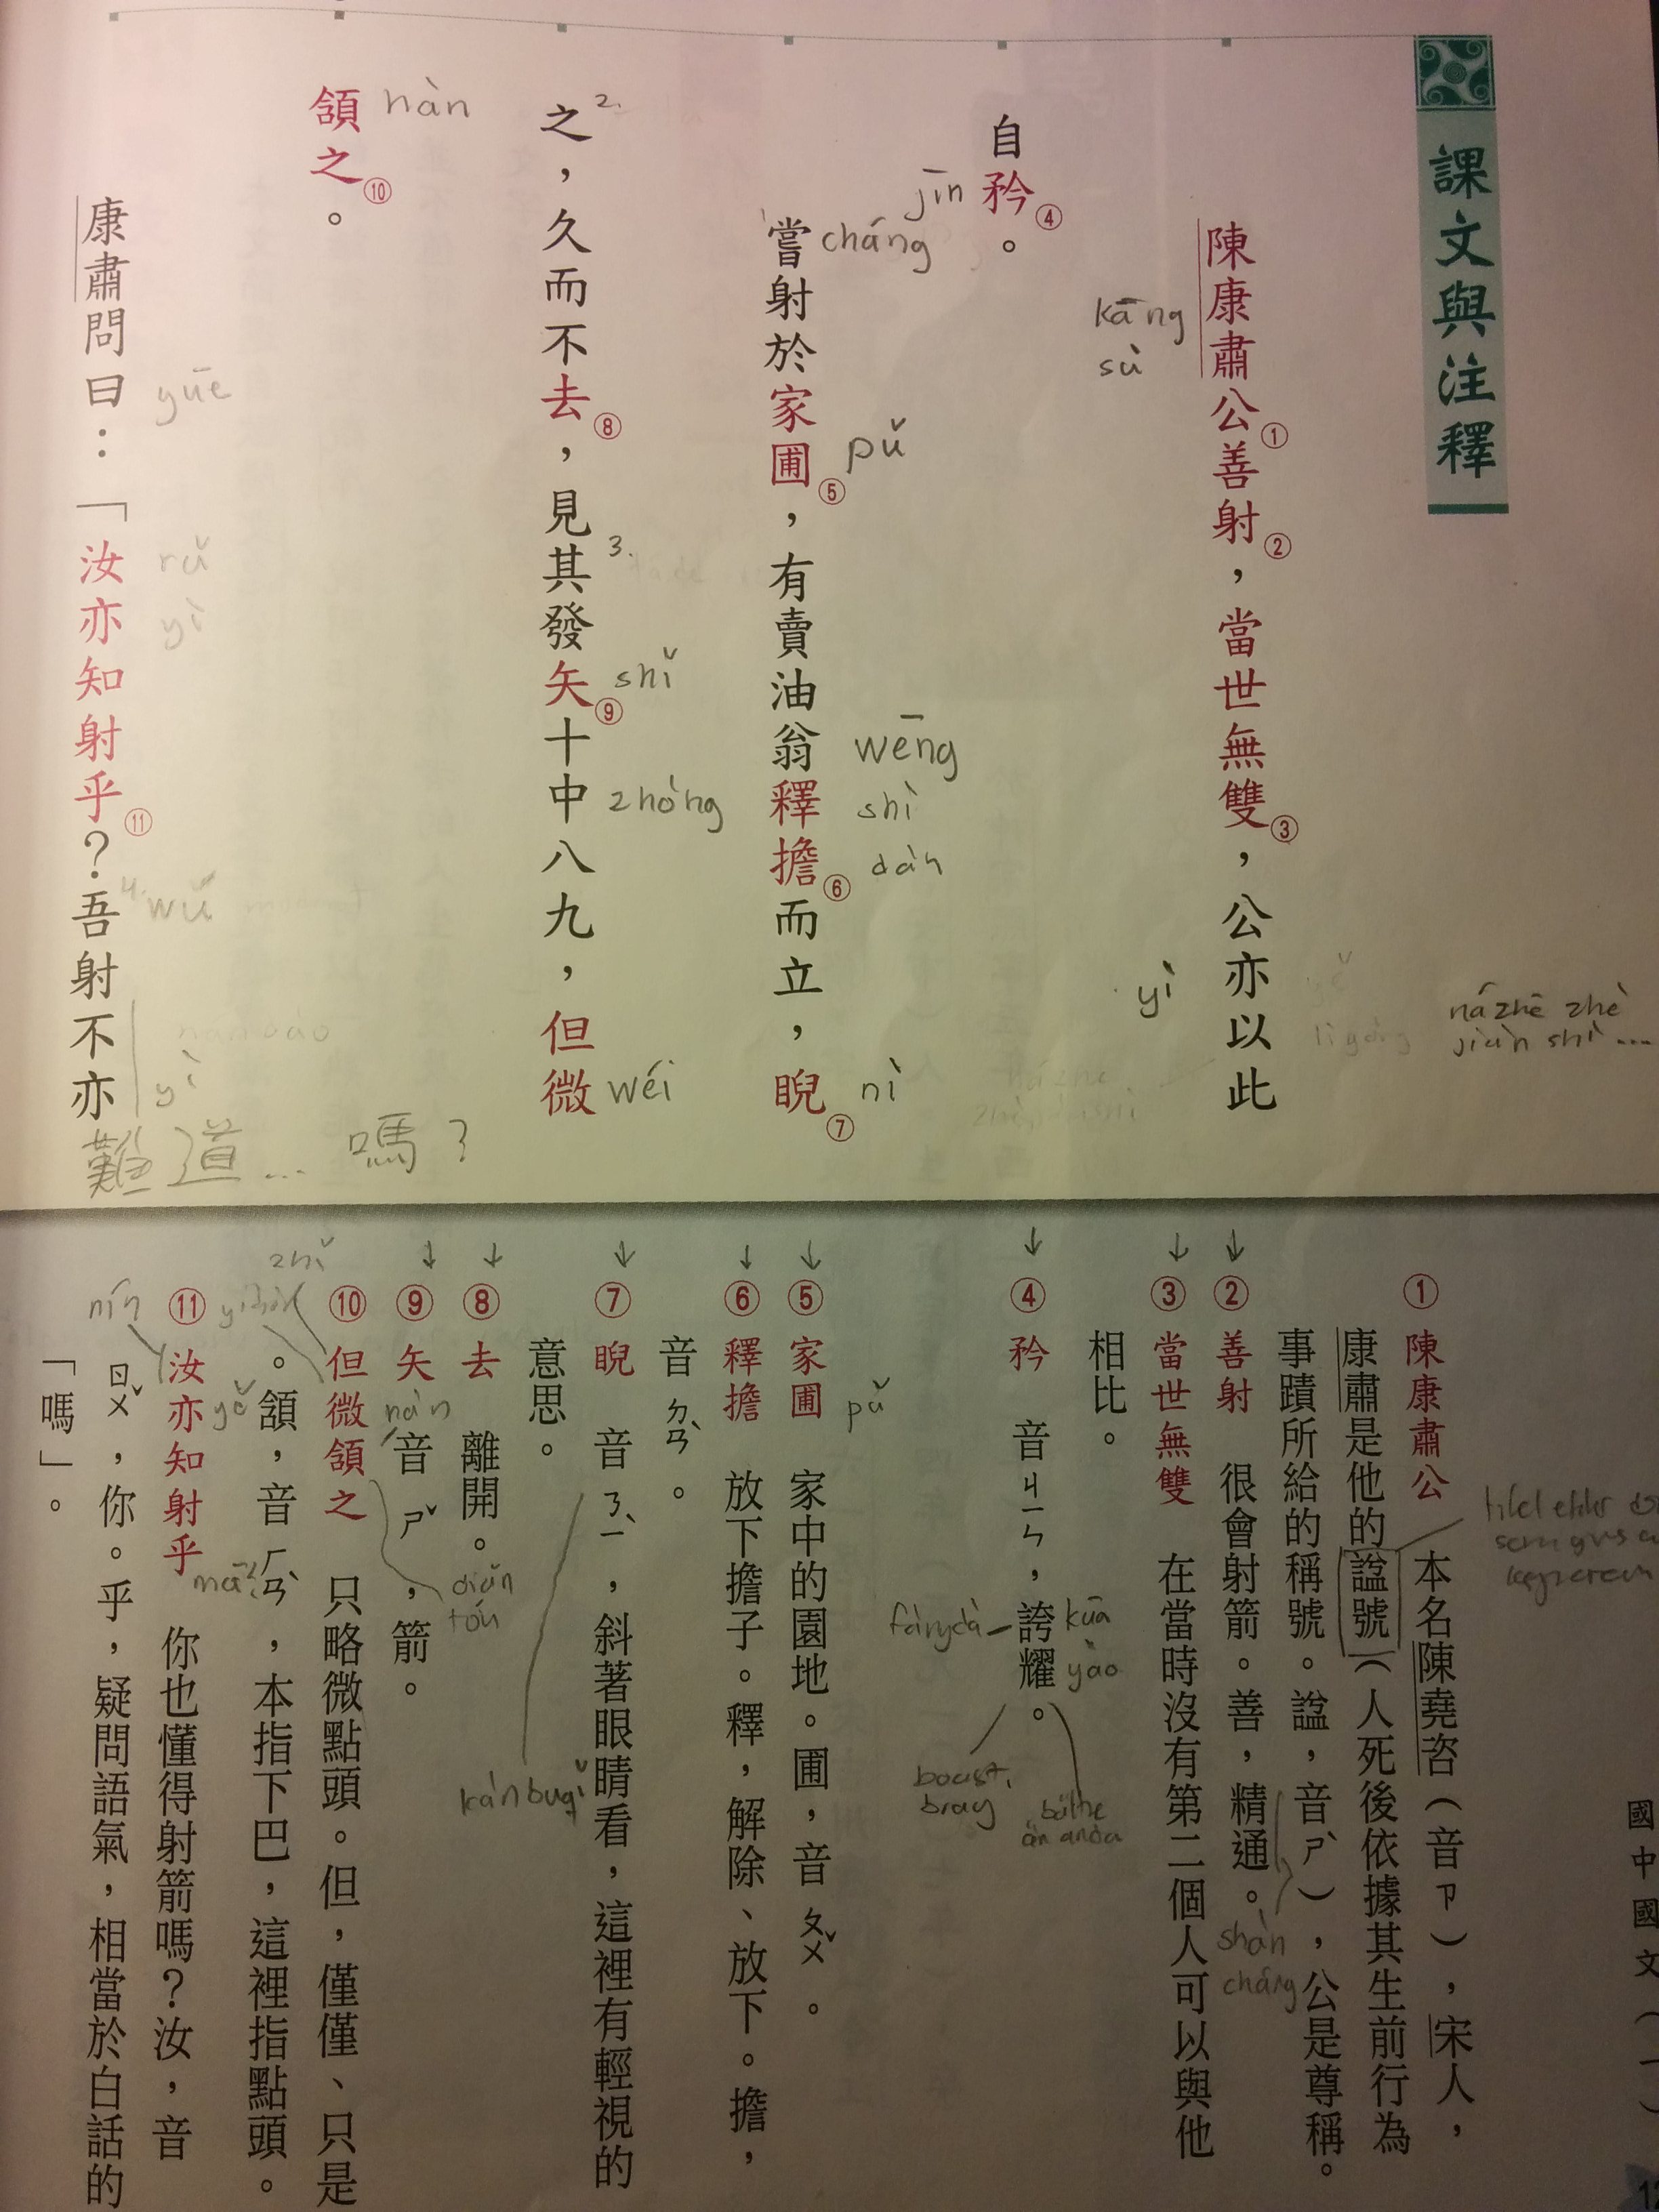 課文與注釋
陳康肅公①善射②，當世無雙③，公亦以此
kāng
sù
yì
názhe zhè
jiàn shì...
自矜④。
jīn
嘗射於家圃⑤，有賣油翁釋擔⑥而立，睨⑦
cháng
pǔ
wēng
shì
dàn
nì
之，久而不去⑧，見其發矢⑨十中八九，但微
2.
3.
shǐ
zhòng
wéi
頷之⑩。
hàn
康肅問曰：「汝亦知射乎⑪？吾射不亦
yuē
rǔ
yì
4.
wǔ
yì
難道...嗎？
①陳康肅公 本名陳堯咨（音ㄗ），宋人，
康肅是他的諡號（人死後依據其生前行為
事蹟所給的稱號。諡，音ㄕˋ），公是尊稱。
②善射 很會射箭。善，精通。
shàn
cháng
③當世無雙 在當時沒有第二個人可以與他
相比。
④矜 音ㄐㄧㄣ，誇耀。
kuā
yào
fàngdà
boast,
bray
⑤家圃 家中的園地。圃，音ㄆㄨˇ。
pǔ
⑥釋擔 放下擔子。釋，解除、放下。擔，
音ㄉㄢˋ。
⑦睨 音ㄋㄧˋ，斜著眼睛看，這裡有輕視的
意思。
kànbuqǐ
⑧去 離開。
⑨矢 音ㄕˇ，箭。
diǎn
tóu
⑩但微頷之 只略微點頭。但，僅僅、只是
。頷，音ㄏㄢˋ，本指下巴，這裡指點頭。
zhǐ
hàn
⑪汝亦知射乎 你也懂得射箭嗎？汝，音
nín
yě
ma?
ㄖㄨˇ，你。乎，疑問語氣，相當於白話的
「嗎」。
國中國文（一）